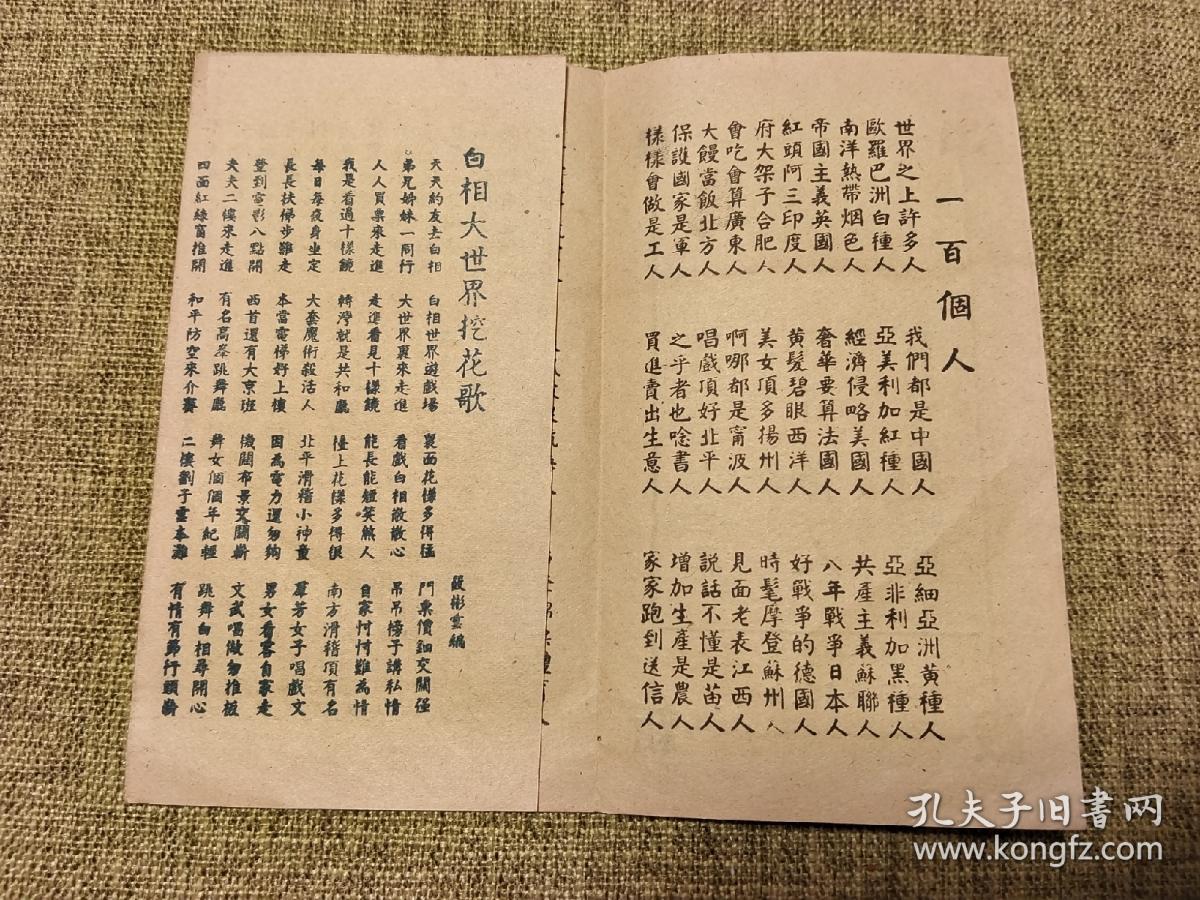 一百個人
世界之上許多人 我們都是中國人 亞細亞洲黃種人
歐羅巴洲白種人 亞美利加紅種人 亞非利加黑種人
南洋熱帶烟色人 經濟侵略美國人 共產主義蘇聯人
帝國主義英國人 奢華要算法國人 八年戰爭日本人
紅頭阿三印度人 黃髮碧眼西洋人 好戰爭的德國人
府大架子合肥人 美女頂多揚州人 時髦摩登蘇州人
會吃會算廣東人 啊哪都是甯波人 見面老表江西人
大饅當飯北方人 唱戲頂好北平人 說話不懂是苗人
保護國家是軍人 之乎者也唸書人 增加生產是農人
樣樣會做是工人 買進賣出生意人 家家跑到送信人
白相大世界挖花歌
嚴彬雲編
天天約友去白相 白相世界遊戲場 裏面花樣多得猛 門票價鈿交關强
弟兄姊妹一同行 大世界裏來走進 看戲白相散散心 吊吊榜子講私情
人人買票來走進 走進看見十樣鏡 能長能短笑煞人 自家忖忖難為情
我是看過十樣鏡 轉灣就是共和廳 檯上花樣多得很 南方滑稽項有名
每日每夜身坐定 大套魔術殺活人 北平滑稽小神童 羣芳女子唱戲文
長長扶梯步難走 本當電梯好上樓 因為電力還勿夠 男女看客自家走
登到電影八點開 西首還有大京班 機關布景交關嶄 文武唱做勿推板
夫夫二樓來走進 有名高尞跳舞廳 舞女個個年紀輕 跳舞白相尋開心
四面紅綠窗推開 和平防空來介賽 二樓劉子雲本灘 有情有節行頭嶄
孔夫子旧书网
www.kongfz.com